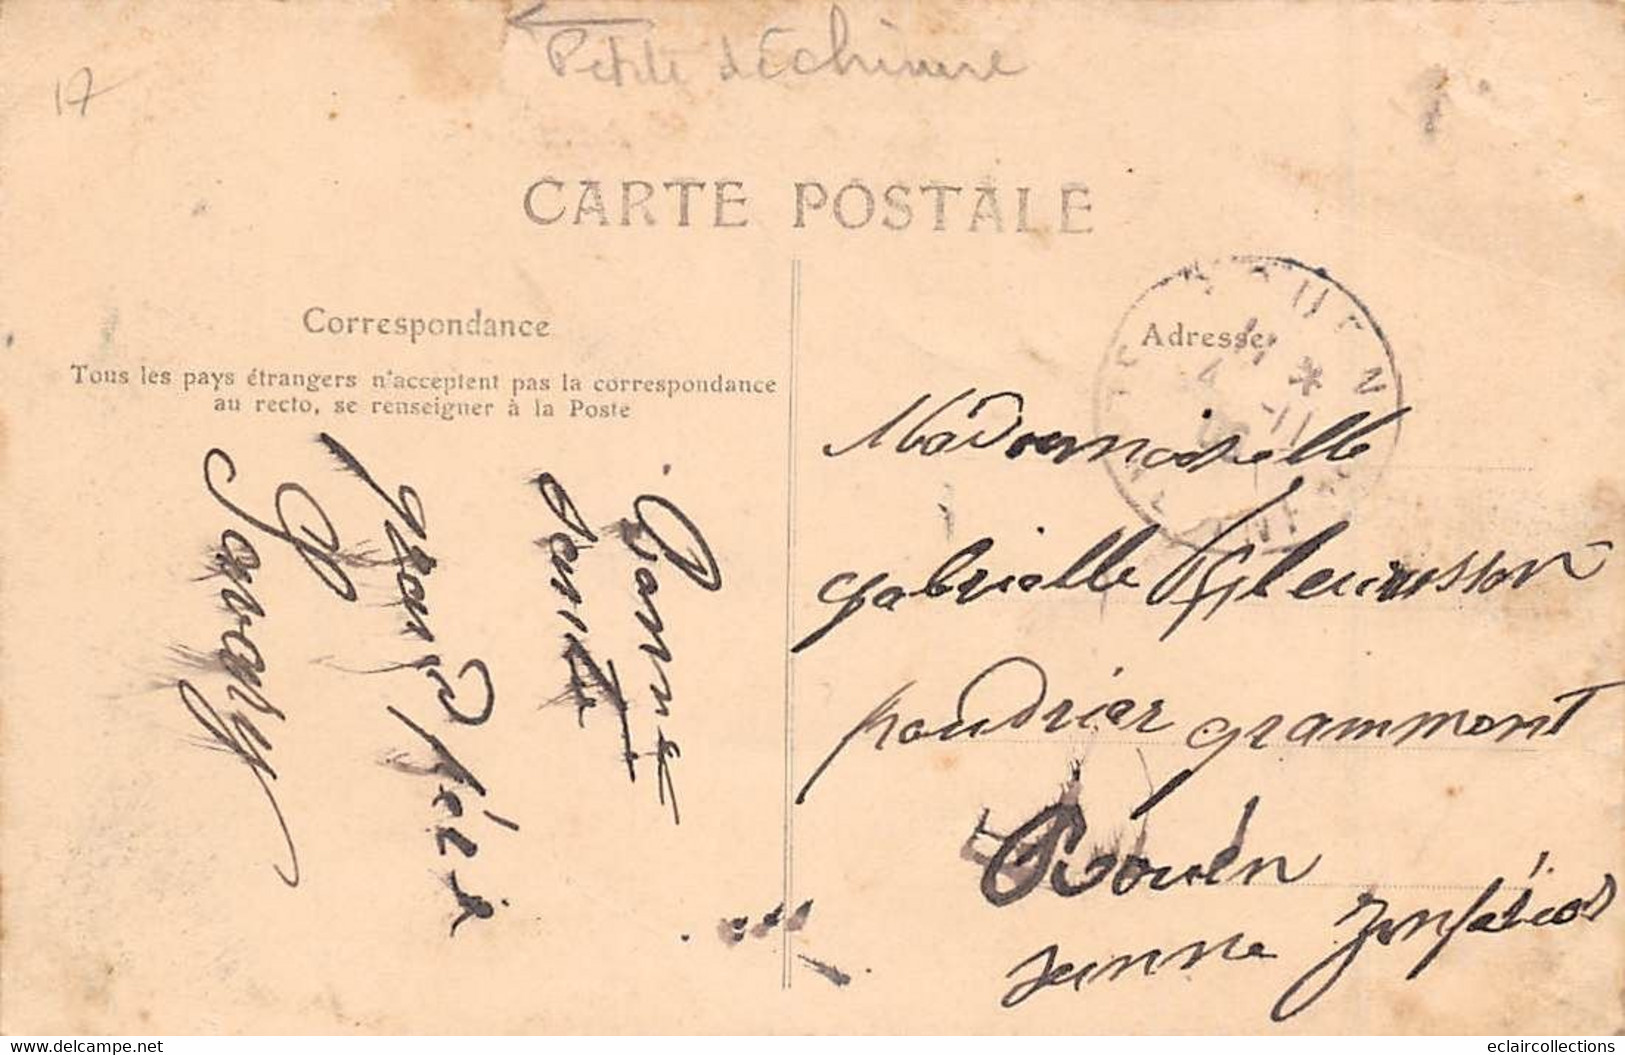 Petite déchirure
17
CARTE POSTALE
Correspondance
Tous les pays étrangers n'acceptent pas la correspondance
au recto, se renseigner à la Poste
Bonne
Santé
grand félix
Savary
Adresse
Mademoiselle
gabrielle
poudrier grammont
Rouen
Seinne Inférieur
www.delcampe.net
eclaircollections